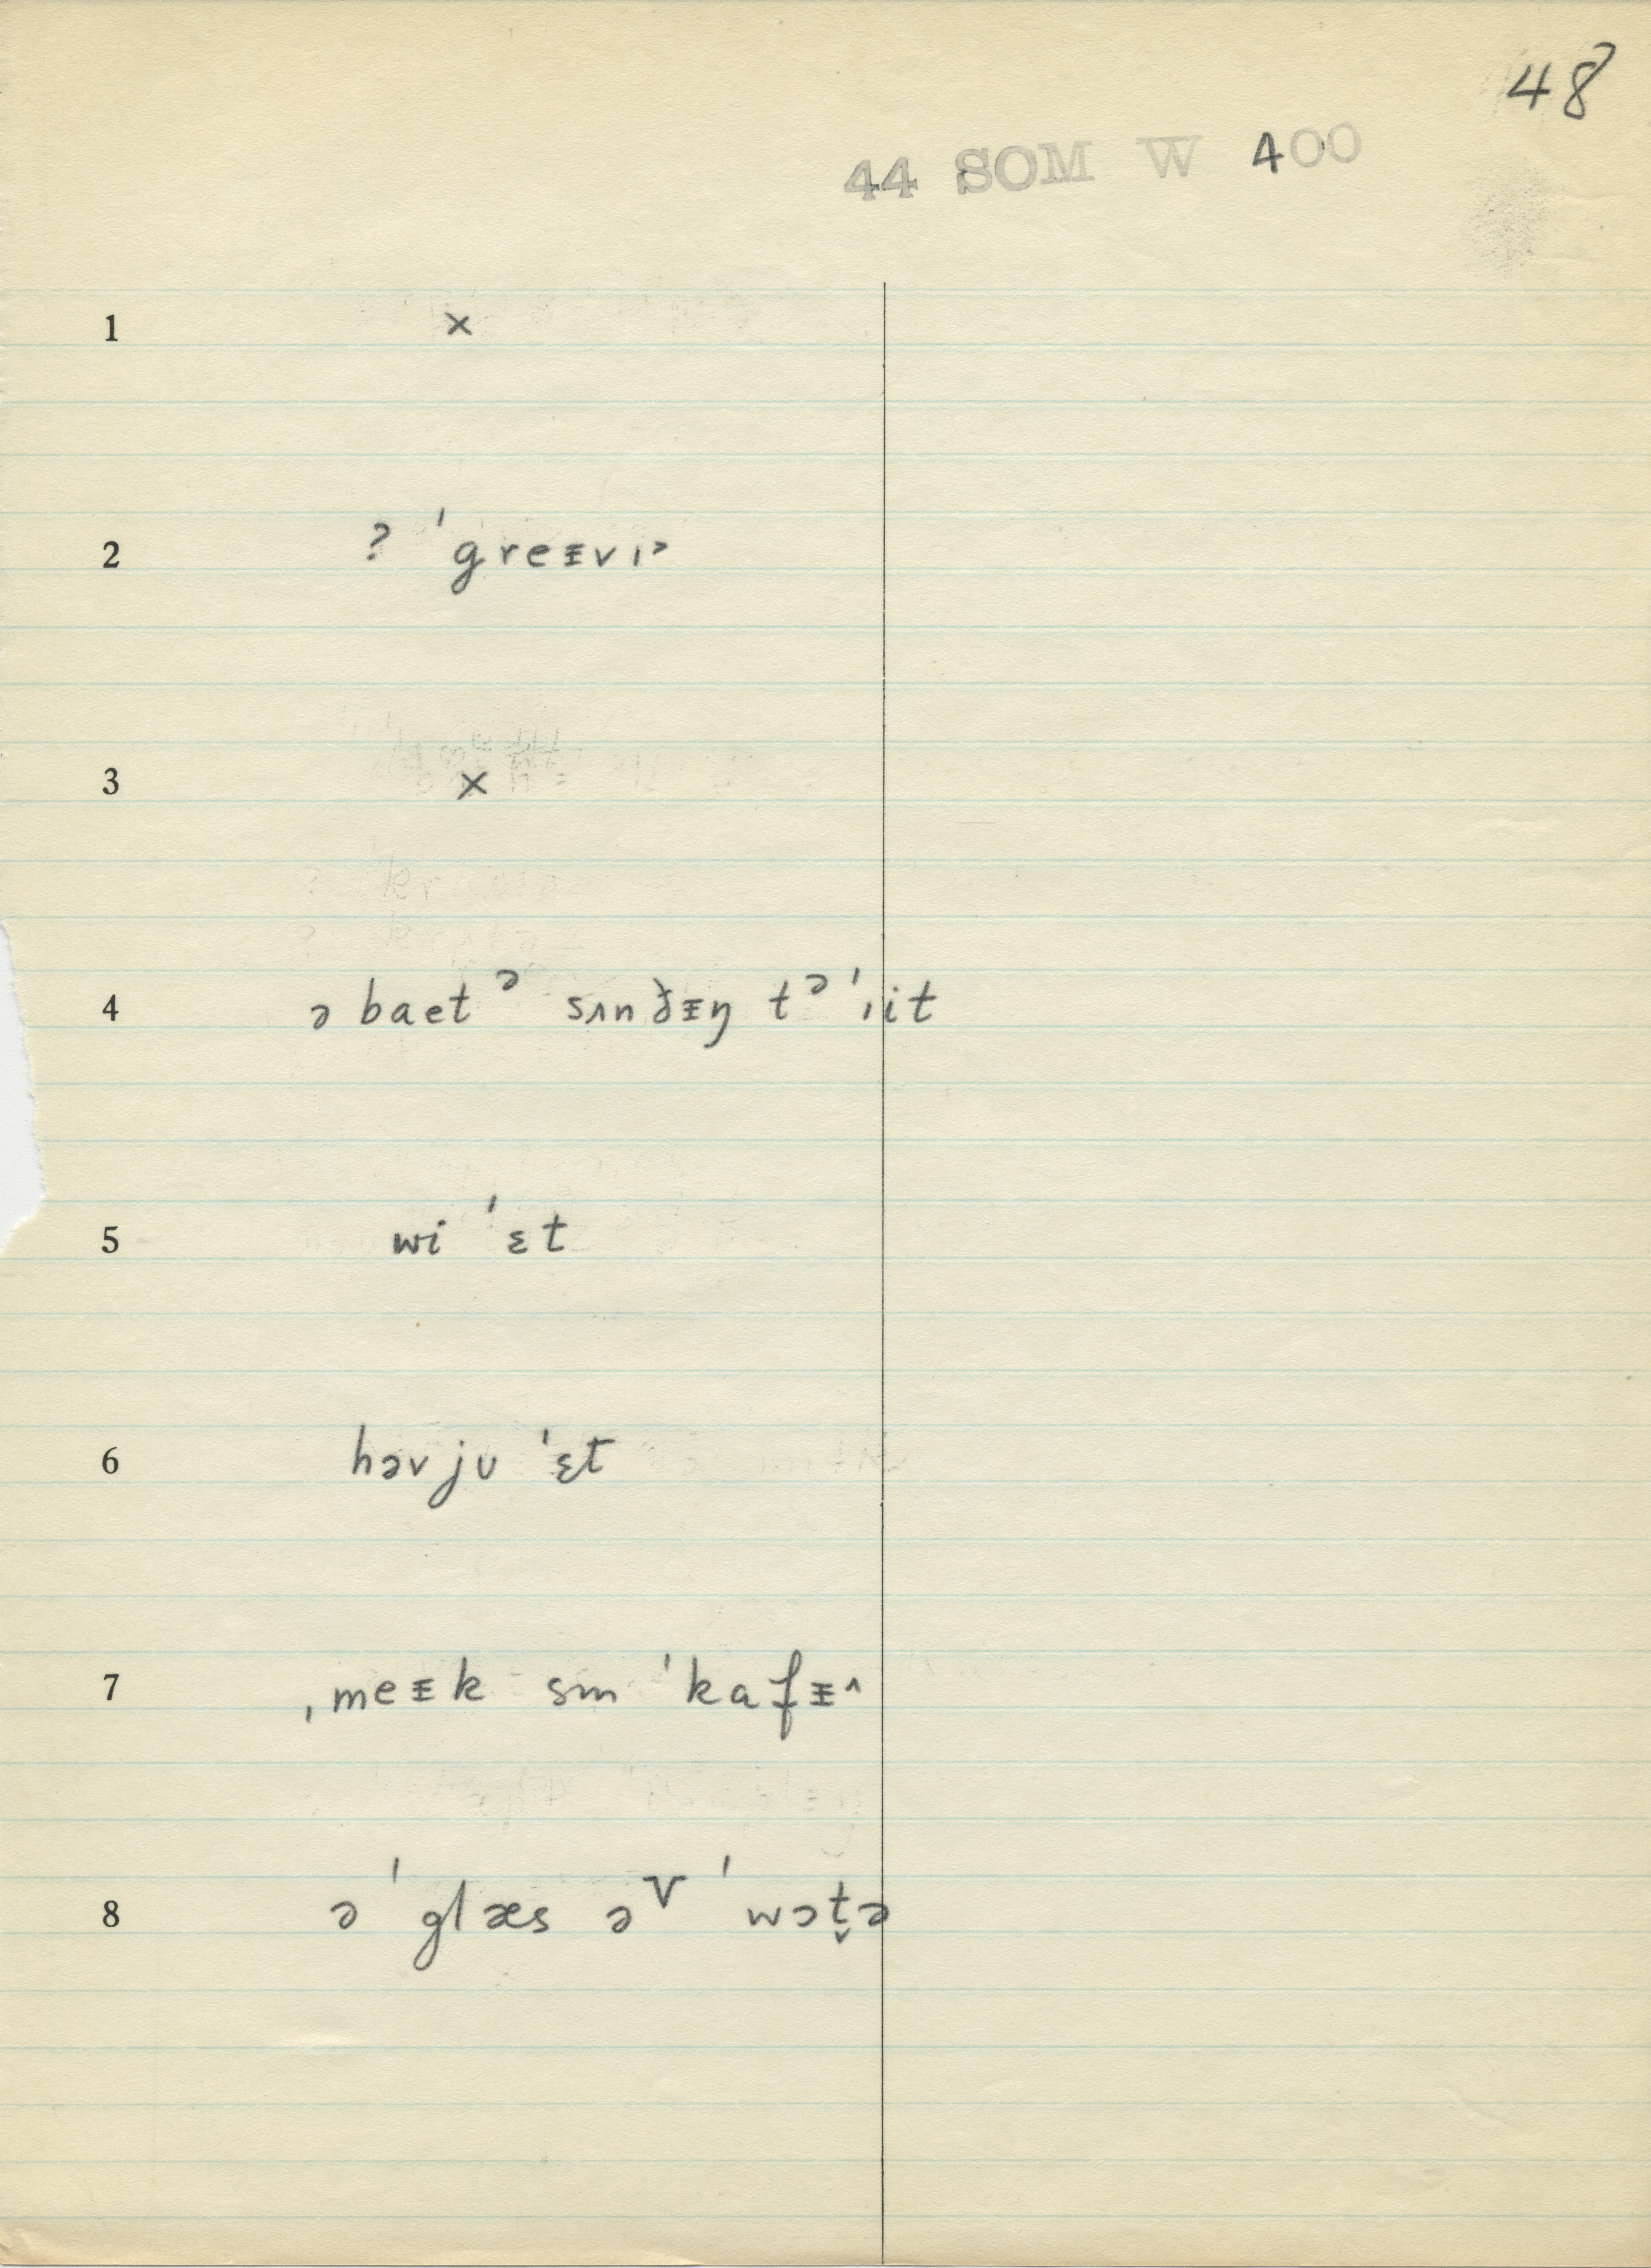 48
44 SOM W 400
1 ×
2 ? ˈgreᵻvɪᵊ
3 ×
4 ə baetᵊ sʌnðᵻŋ tᵊ ˈˌit
5 wi ˈɛt
6 həvjʊ ˈɛt
7 ˌmeᵻk sm ˈkafᵻ^
8 ə ˈglæs əᵛ ˈwɔt̬ə